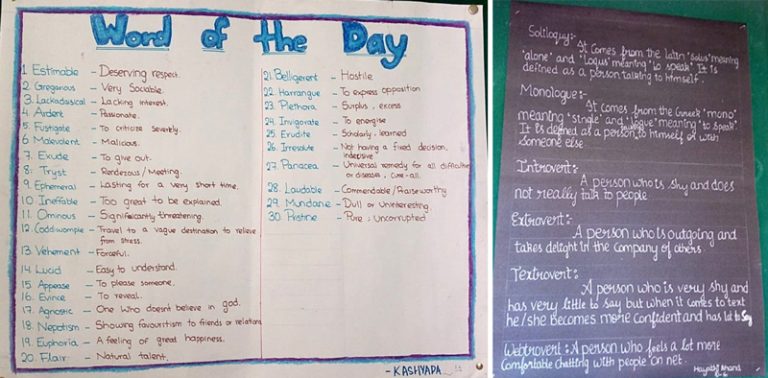 Word of the Day
1 Estimable - Deserving respect.
2. Gregarious - Very Sociable.
3. Lackadaisical - Lacking interest.
4. Ardent - Passionate.
5. Fustigate - To criticize severely.
6 Malevolent - Malicious.
7. Exude - To give out.
8. Tryst - Rendezous / Meeting.
9. Ephemeral - Lasting for a very short time.
10 Ineffable - Too great to be explained.
11. Ominous - Significantly threatening.
12. Coddiwomple - Travel to a vague destination to relieve
from stress.
13 Vehement - Forceful.
14. Lucid - Easy to understand.
15. Appease - To please someone.
16. Evince - To reveal.
17. Agnostic - One Who doesnt believe in god.
18. Nepotism - Showing favouritism to friends or relations
19. Euphoria - A feeling of great happiness.
20. Flair - Natural talent.
21. Belligerent - Hostile
22. Harrangue - To express opposition
23. Plethora - Surplus, excess
24. Invigorate - To energise
25. Erudite - Scholarly - learned
26. Irresolute - Not having a fixed decision,
indecisive
27. Panacea - Universal remedy for all difficulties
or diseases, cure-all.
28. Laudable - Commendable / Praiseworthy
29. Mundane - Dull or Uninteresting
30 Pristine - Pure ; Uncorrupted
- KASHYAPA
Soliloquy:-
It comes from the latin 'Solus' meaning
'alone' and 'Loqus' meaning 'to speak' It is
defined as a person talking to himself.
Monologue:-
It comes from the Greek 'mono'
meaning 'single' and 'logue' meaning 'to speak'.
It is defined as a person to himself or with
someone else
Introvert:-
A person who is shy and does
not really talk to people
Extrovert:-
A person who is outgoing and
takes delight in the company of others.
Textrovert:-
A person who is very shy and
has very little to say but when it comes to text
he/she becomes more confident and has lot to say
Webtrovert:- A person who feels a lot more
comfortable chatting with people on net.
Anand